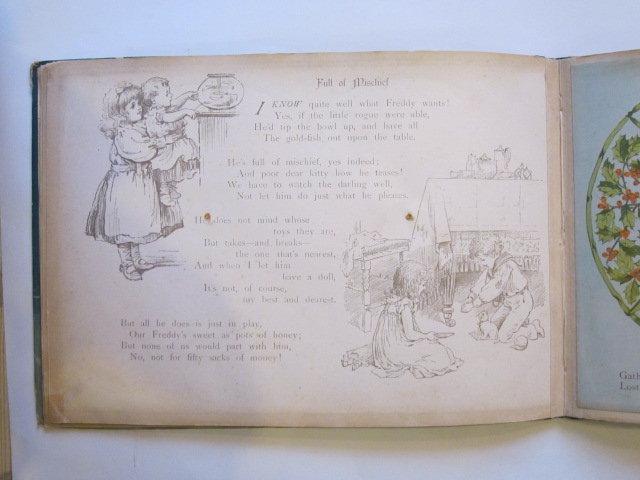 Full of Mischief
I KNOW quite well what Freddy wants!
Yes, if the little rogue were able,
He'd tip the bowl up, and have all
The gold-fish, out upon the table.
He's full of mischief, yes indeed;
And poor dear kitty how he teases!
We have to watch the darling well,
Not let him do just what he pleases.
He does not mind whose
toys they are,
But takes—and breaks—
the one that's nearest,
And when I let him
have a doll,
It's not, of course,
my best and dearest.
But all he does is just in play,
Our Freddy's sweet as pots of honey;
But none of us would part with him,
No, not for fifty sacks of money!
Gath
Lost